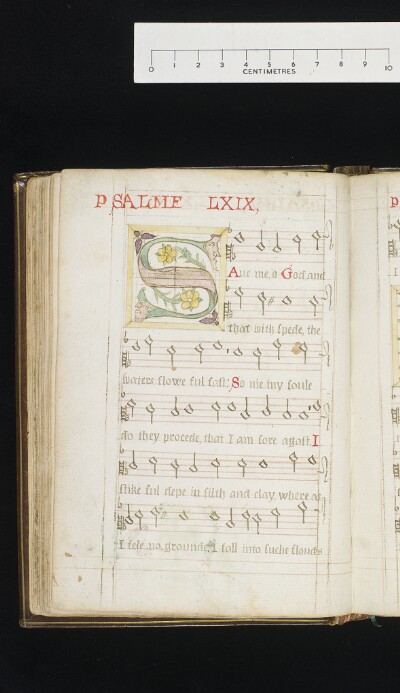 0 1 2 3 4 5 6 7 8 9 10
CENTIMETRES
PSALME LXIX,
S
Aue me, o God, and
that with spede, the
waters flowe ful fast: So nie my soule
do they procede, that I am sore agast I
stike ful depe in filth and clay, where as
I fele no grounde, I fall into suche flouds
P